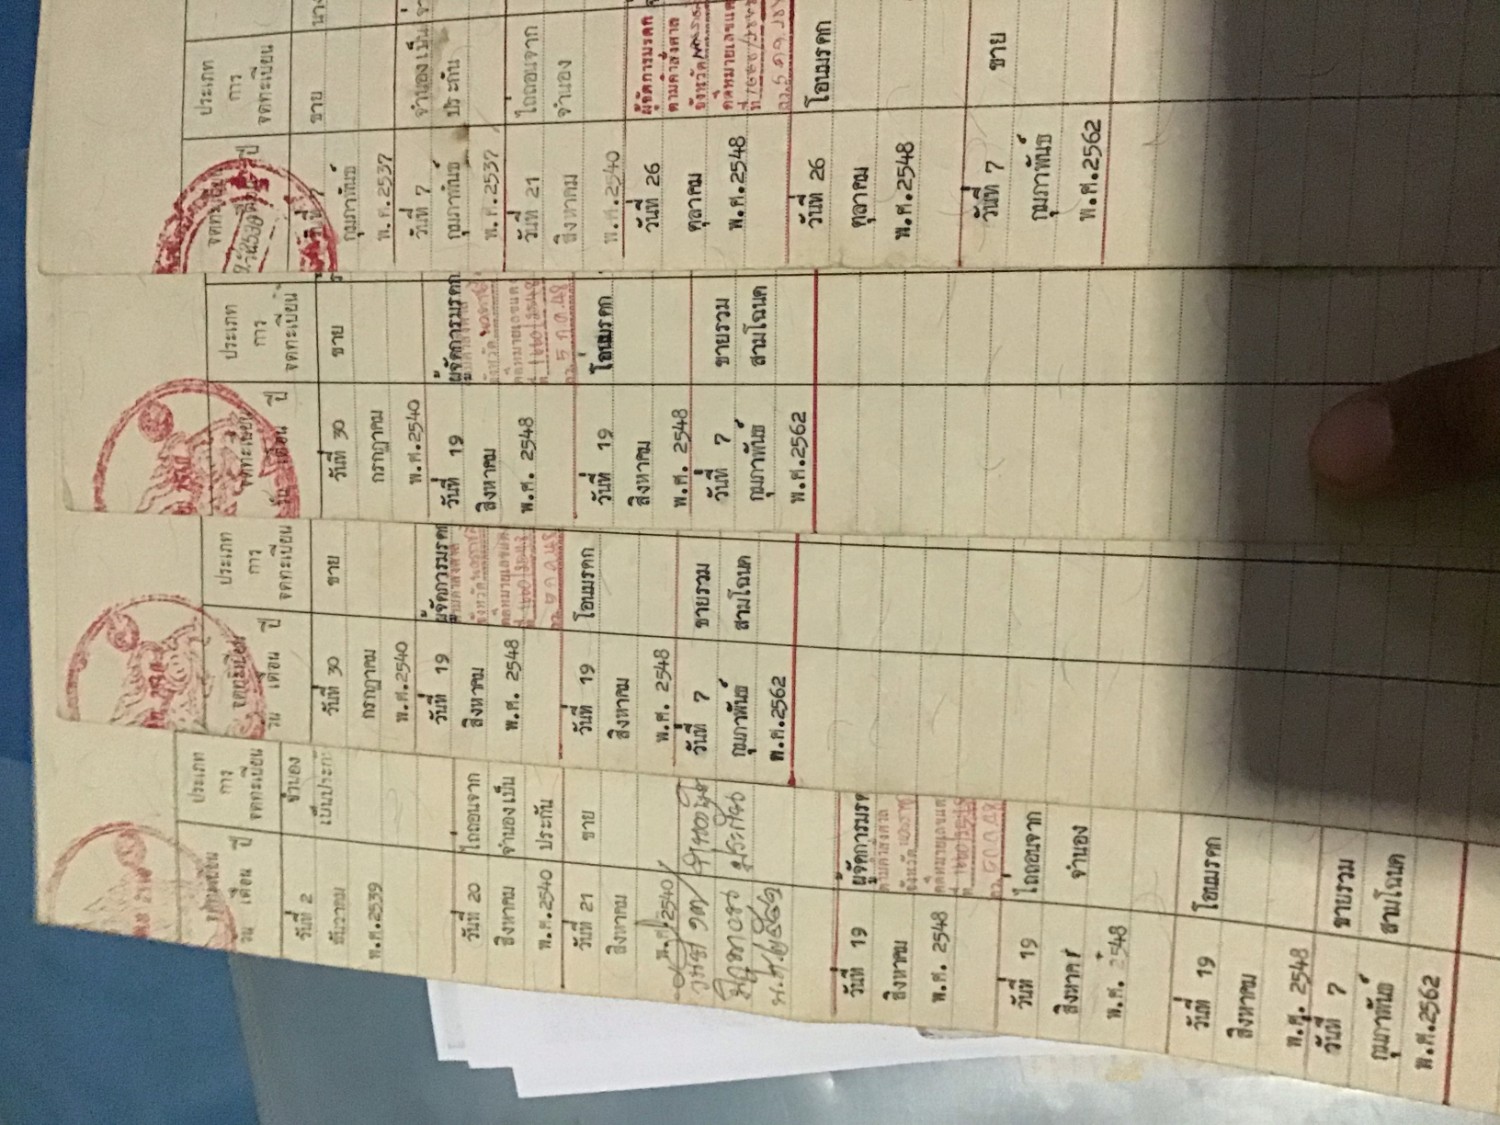 ประเภท
การ
จดทะเบียน
จดทะเบียน
ปี
ขาย
กุมภาพันธ์
พ.ศ.2537
จำนองเป็น
ประกัน
วันที่ 7
กุมภาพันธ์
พ.ศ.2537
ไถ่ถอนจาก
จำนอง
วันที่ 21
สิงหาคม
พ.ศ.2540
ผู้จัดการมรดก
ตามคำสั่งศาล
จังหวัด
คดีหมายเลขแดง
วันที่ 26
ตุลาคม
พ.ศ.2548
โอนมรดก
วันที่ 26
ตุลาคม
พ.ศ.2548
ขาย
วันที่ 7
กุมภาพันธ์
พ.ศ.2562
ประเภท
การ
จดทะเบียน
จดทะเบียน
เดือน ปี
ขาย
วันที่ 30
กรกฎาคม
พ.ศ.2540
ผู้จัดการมรดก
ตามคำสั่งศาล
จังหวัด
คดีหมายเลขแดง
วันที่ 19
สิงหาคม
พ.ศ. 2548
โอนมรดก
วันที่ 19
สิงหาคม
พ.ศ. 2548
ขายรวม
สามโฉนด
วันที่ 7
กุมภาพันธ์
พ.ศ.2562
ประเภท
การ
จดทะเบียน
จดทะเบียน
เดือน ปี
ขาย
วันที่ 30
กรกฎาคม
พ.ศ.2540
ผู้จัดการมรดก
ตามคำสั่งศาล
จังหวัด
คดีหมายเลขแดง
วันที่ 19
สิงหาคม
พ.ศ. 2548
โอนมรดก
วันที่ 19
สิงหาคม
พ.ศ. 2548
ขายรวม
สามโฉนด
วันที่ 7
กุมภาพันธ์
พ.ศ.2562
ประเภท
การ
จดทะเบียน
จดทะเบียน
เดือน ปี
จำนอง
เป็นประกัน
วันที่ 2
ธันวาคม
พ.ศ.2539
ไถ่ถอนจาก
จำนองเป็น
ประกัน
วันที่ 20
สิงหาคม
พ.ศ.2540
ขาย
วันที่ 21
สิงหาคม
พ.ศ.2540
ผู้จัดการมรดก
ตามคำสั่งศาล
จังหวัด
คดีหมายเลขแดง
วันที่ 19
สิงหาคม
พ.ศ. 2548
ไถ่ถอนจาก
จำนอง
วันที่ 19
สิงหาคม
พ.ศ. 2548
โอนมรดก
วันที่ 19
สิงหาคม
พ.ศ. 2548
ขายรวม
สามโฉนด
วันที่ 7
กุมภาพันธ์
พ.ศ.2562